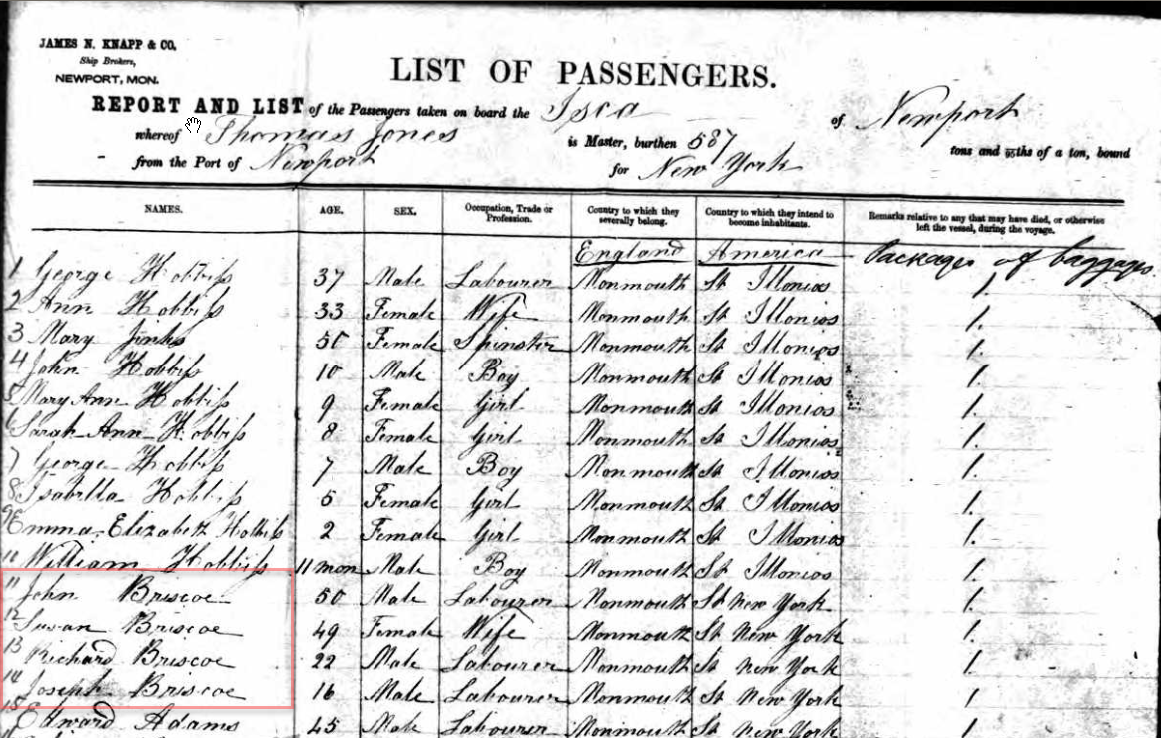 JAMES N. KNAPP & CO,
Ship Brokers,
NEWPORT, MON.
LIST OF PASSENGERS.
REPORT AND LIST of the Passengers taken on board the Isca of Newport
whereof Thomas Jones is Master, burthen 587 tons and ths of a ton, bound
from the Port of Newport for New York
NAMES. AGE. SEX. Occupation, Trade or Profession. Country to which they severally belong. Country to which they intend to become inhabitants. Remarks relative to any that may have died, or otherwise left the vessel, during the voyage.
England America Packages of baggages
1 George Hobbiss 37 Male Labourer Monmouth St Illonios 1.
2 Ann Hobbiss 33 Female Wife Monmouth St Illonios 1.
3 Mary Jinks Female Spinster Monmouth St Illonios 1.
4 John Hobbiss 10 Male Boy Monmouth St Illonios 1.
5 Mary Ann Hobbiss 9 Female Girl Monmouth St Illonios 1.
6 Sarah Ann Hobbiss 8 Female Girl Monmouth St Illonios 1.
7 George Hobbiss 7 Male Boy Monmouth St Illonios 1.
8 Isabella Hobbiss 5 Female Girl Monmouth St Illonios 1.
9 Emma Elizabeth Hobbiss 2 Female Girl Monmouth St Illonios 1.
William Hobbiss 11 mon Male Boy Monmouth St Illonios 1.
11 John Briscoe 50 Male Labourer Monmouth St New York 1.
12 Susan Briscoe 49 Female Wife Monmouth St New York 1.
13 Richard Briscoe 22 Male Labourer Monmouth St New York 1.
14 Joseph Briscoe 16 Male Labourer Monmouth St New York 1
15 Edward Adams 45 Male Labourer Monmouth St New York 1.